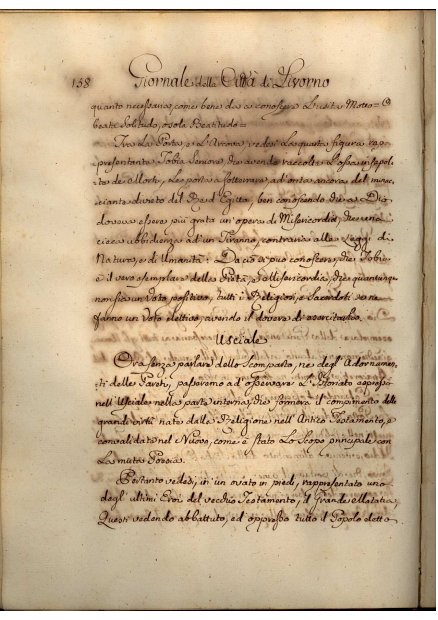 158 Giornale della Città di Livorno
quanto necessario, come bene da a conoscere Motto = O
beata Solitudo, o sola Beatitudo =
Tra la Porta, e L'Arcova vedesi La quarta figura rap-
presentante Tobia Seniore, che avendo raccolte L'ossa insepol-
te de Morti, Le porta a sotterrare, ad'onta ancora del minac-
ciante divieto del Re d'Egitto, ben conoscendo che a Dio
doveva essere più grata un'opera di Misericordia, che una
cieca ubbidienza ad'un Tiranno, contraria alle Leggi di
Natura, e di Umanità: Da ciò si può conoscere, che Tobia
è il vero esemplare della Pietà, e Misericordia, che quantunque
non sia un Voto positivo, tutti i Religiosi, e Sacerdoti se ne
fanno un Voto elettivo, avendo il dovere di esercitarla.
Usciale
Ora senza parlare dello Scomparto, ne degl'Adornamen-
ti delle Pareti, passeremo ad'osservare L'Istoriato espresso
nell'Usciale nella parte interna, che formerà il compimento delle
grandi virtù nate dalla Religione nell'Antico Testamento, e
convalidate nel Nuovo, come è stato Lo Scopo principale con
La muta Poesia.
Pertanto vedesi, in un ovato in piedi, rappresentato uno
degl'ultimi Eroi del vecchio Testamento, il Grande Matatia,
Questi vedendo abbattuto, ed oppresso tutto il Popolo detto